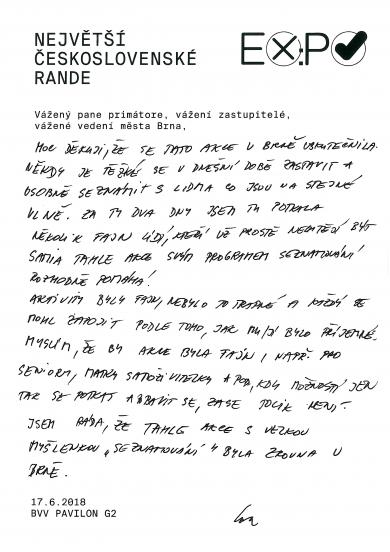 NEJVĚTŠÍ
ČESKOSLOVENSKÉ
RANDE
EX:PO
Vážený pane primátore, vážení zastupitelé,
vážené vedení města Brna,
MOC DĚKUJI, ŽE SE TATO AKCE V BRNĚ USKUTEČNILA.
NĚKDY JE TĚŽKÉ SE V DNEŠNÍ DOBĚ ZASTAVIT A
OSOBNĚ SEZNÁMIT S LIDMA CO JSOU NA STEJNÉ
VLNĚ. ZA TY DVA DNY JSEM TU POTKALA
NĚKOLIK FAJN LIDÍ, KTEŘÍ UŽ PROSTĚ NECHTĚJÍ BÝT
SAMI A TAHLE AKCE SVÝM PROGRAMEM SEZNAMOVÁNÍ
ROZHODNĚ POMÁHÁ!
AKTIVITY BYLY FAJN, NEBYLO TO TRAPNÉ A KAŽDÝ SE
MOHL ZAPOJIT PODLE TOHO, JAK MU/JÍ BYLO PŘÍJEMNÉ.
MYSLÍM, ŽE BY AKCE BYLA FAJN I NAPŘ. PRO
SENIORY, MATKY SAMOŽIVITELKY A POD., KDY MOŽNOSTÍ JEN
TAK SE POTKAT A BAVIT SE, ZASE TOLIK NENÍ.
JSEM RÁDA, ŽE TAHLE AKCE S VELKOU
MYŠLENKOU „SEZNAMOVÁNÍ" BYLA ZROVNA V
BRNĚ.
17.6.2018
BVV PAVILON G2